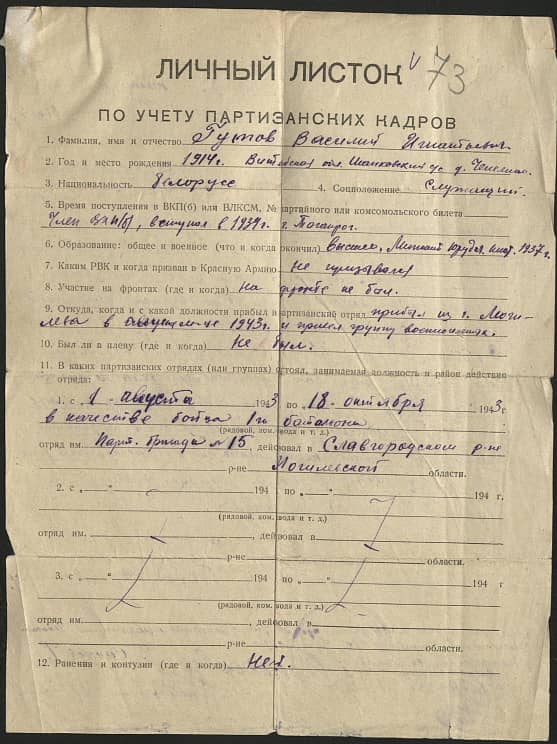 ЛИЧНЫЙ ЛИСТОК
73
ПО УЧЕТУ ПАРТИЗАНСКИХ КАДРОВ
1. Фамилия, имя и отчество Гутов Василий Игнатьевич
2. Год и место рождения 1914г. Витебская обл.
3. Национальность белорусс 4. Соцположение Служащий.
5. Время поступления в ВКП(б) или ВЛКСМ, № партийного или комсомольского билета
Член ВКП(б), вступил в 1939г. г. Таганрог.
6. Образование: общее и военное (что и когда окончил) высшее, 1937г.
7. Каким РВК и когда призван в Красную Армию не призывался
8. Участие на фронтах (где и когда) На фронте не был.
9. Откуда, когда и с какой должности прибыл в партизанский отряд прибыл из г. Моги-
лева в августе м-це 1943г. и привел группу военнопленных.
10. Был ли в плену (где и когда) Не был.
11. В каких партизанских отрядах (или группах) состоял, занимаемая должность и район действия
отряда:
1. с „1“ августа 1943 по „18“ октября 1943 г.
в качестве бойца 1го батальона
(рядовой, ком. взвода и т. д.)
отряд им. Парт. бригада № 15, действовал в Славгородском р-не
р-не Могилевской области.
2. с „ “ 194 по „ “ 194 г.
(рядовой, ком. взвода и т. д.)
отряд им. , действовал в
р-не области.
3. с „ “ 194 по „ “ 194 г.
(рядовой, ком. взвода и т. д.)
отряд им. , действовал в
р-не области.
12. Ранения и контузии (где и когда) Нет.